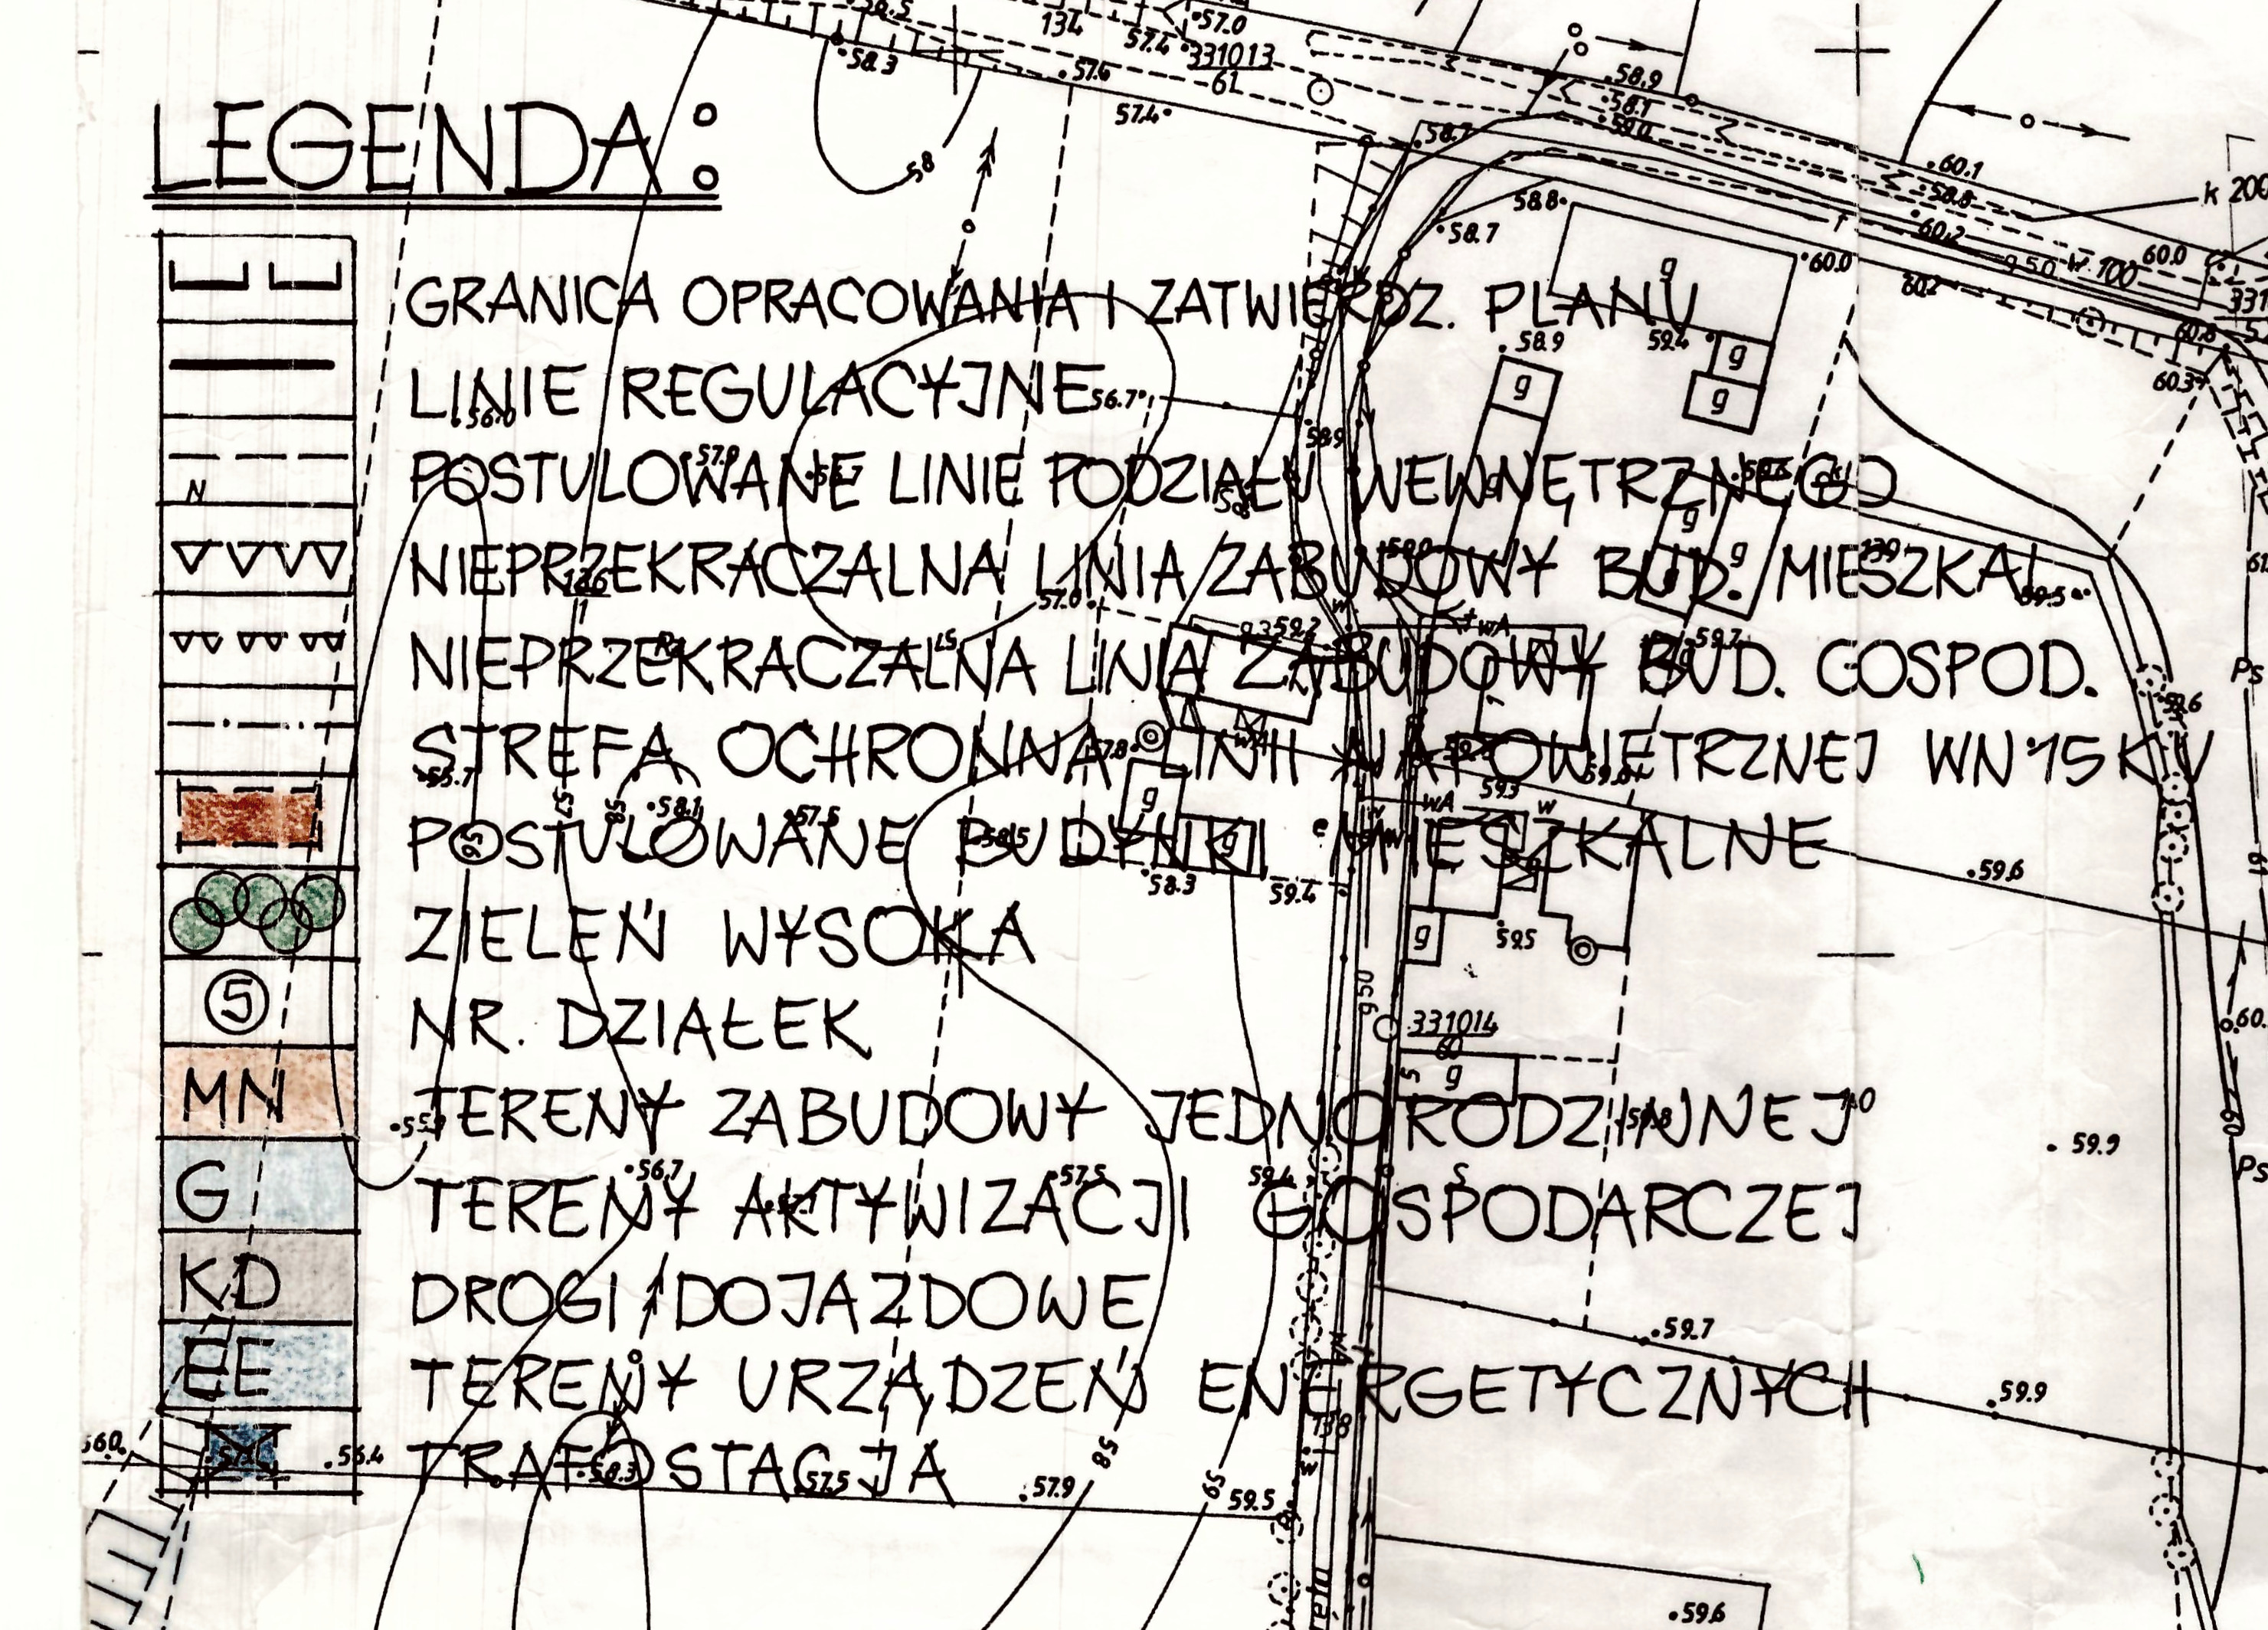 LEGENDA:
GRANICA OPRACOWANIA I ZATWIERDZ. PLANU
LINIE REGULACYJNE
N POSTULOWANE LINIE PODZIAŁU WEWNĘTRZNEGO
NIEPRZEKRACZALNA LINIA ZABUDOWY BUD. MIESZKAL.
NIEPRZEKRACZALNA LINIA ZABUDOWY BUD. GOSPOD.
STREFA OCHRONNA LINII NAPOWIETRZNEJ WN 15 KV
POSTULOWANE BUDYNKI MIESZKALNE
ZIELEŃ WYSOKA
5 NR. DZIAŁEK
MN TERENY ZABUDOWY JEDNORODZINNEJ
G TERENY AKTYWIZACJI GOSPODARCZEJ
KD DROGI DOJAZDOWE
EE TERENY URZĄDZEŃ ENERGETYCZNYCH
TRAFOSTACJA
134
57.0
57.4
331013
61
58.3
57.6
57.4
58
58.9
58.1
59.0
58.7
60.1
58.8
k 200
58.8
58.7
60.0
60.2
g 50
w 100
60.0
60.2
60.8
60.3
g
59.4
58.9
g
g
g
56.7
56.0
58.9
57.0
59.2
59.7
59.5
Ps
59.6
55.7
58.1
57.5
57.8
g
59.3
WA
w
58.3
59.4
59.6
g
59.5
g 50
331014
60
g
56.7
57.5
59.4
59.9
60
Ps
59.7
59.9
138
56.0
56.4
58.3
57.5
57.9
58
59.5
59
59.6